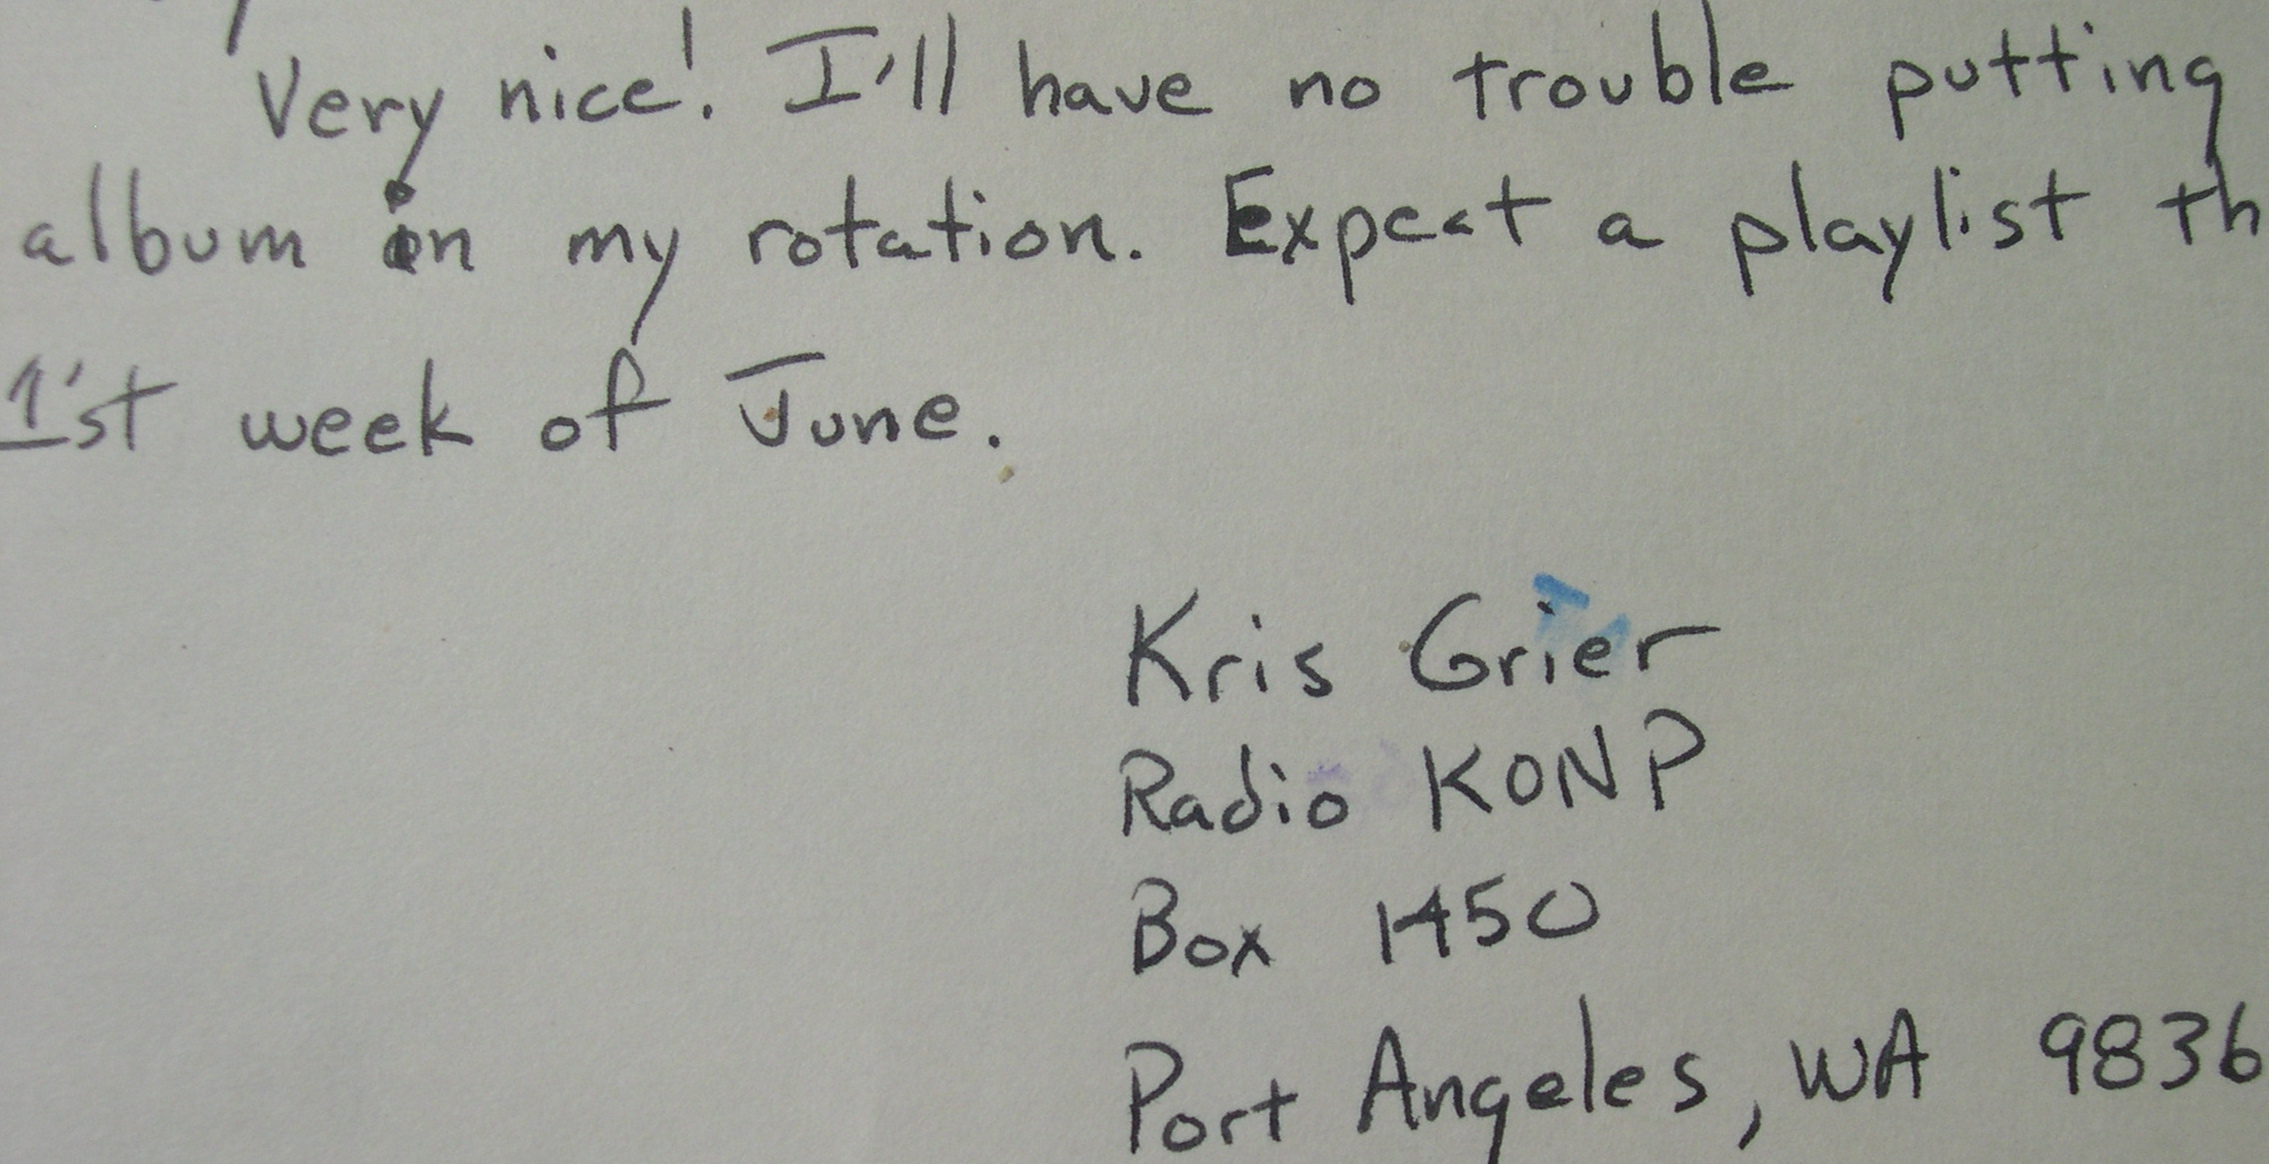 Very nice! I'll have no trouble putting
album in my rotation. Expect a playlist th
1'st week of June.
Kris Grier
Radio KONP
Box 1450
Port Angeles, WA 9836